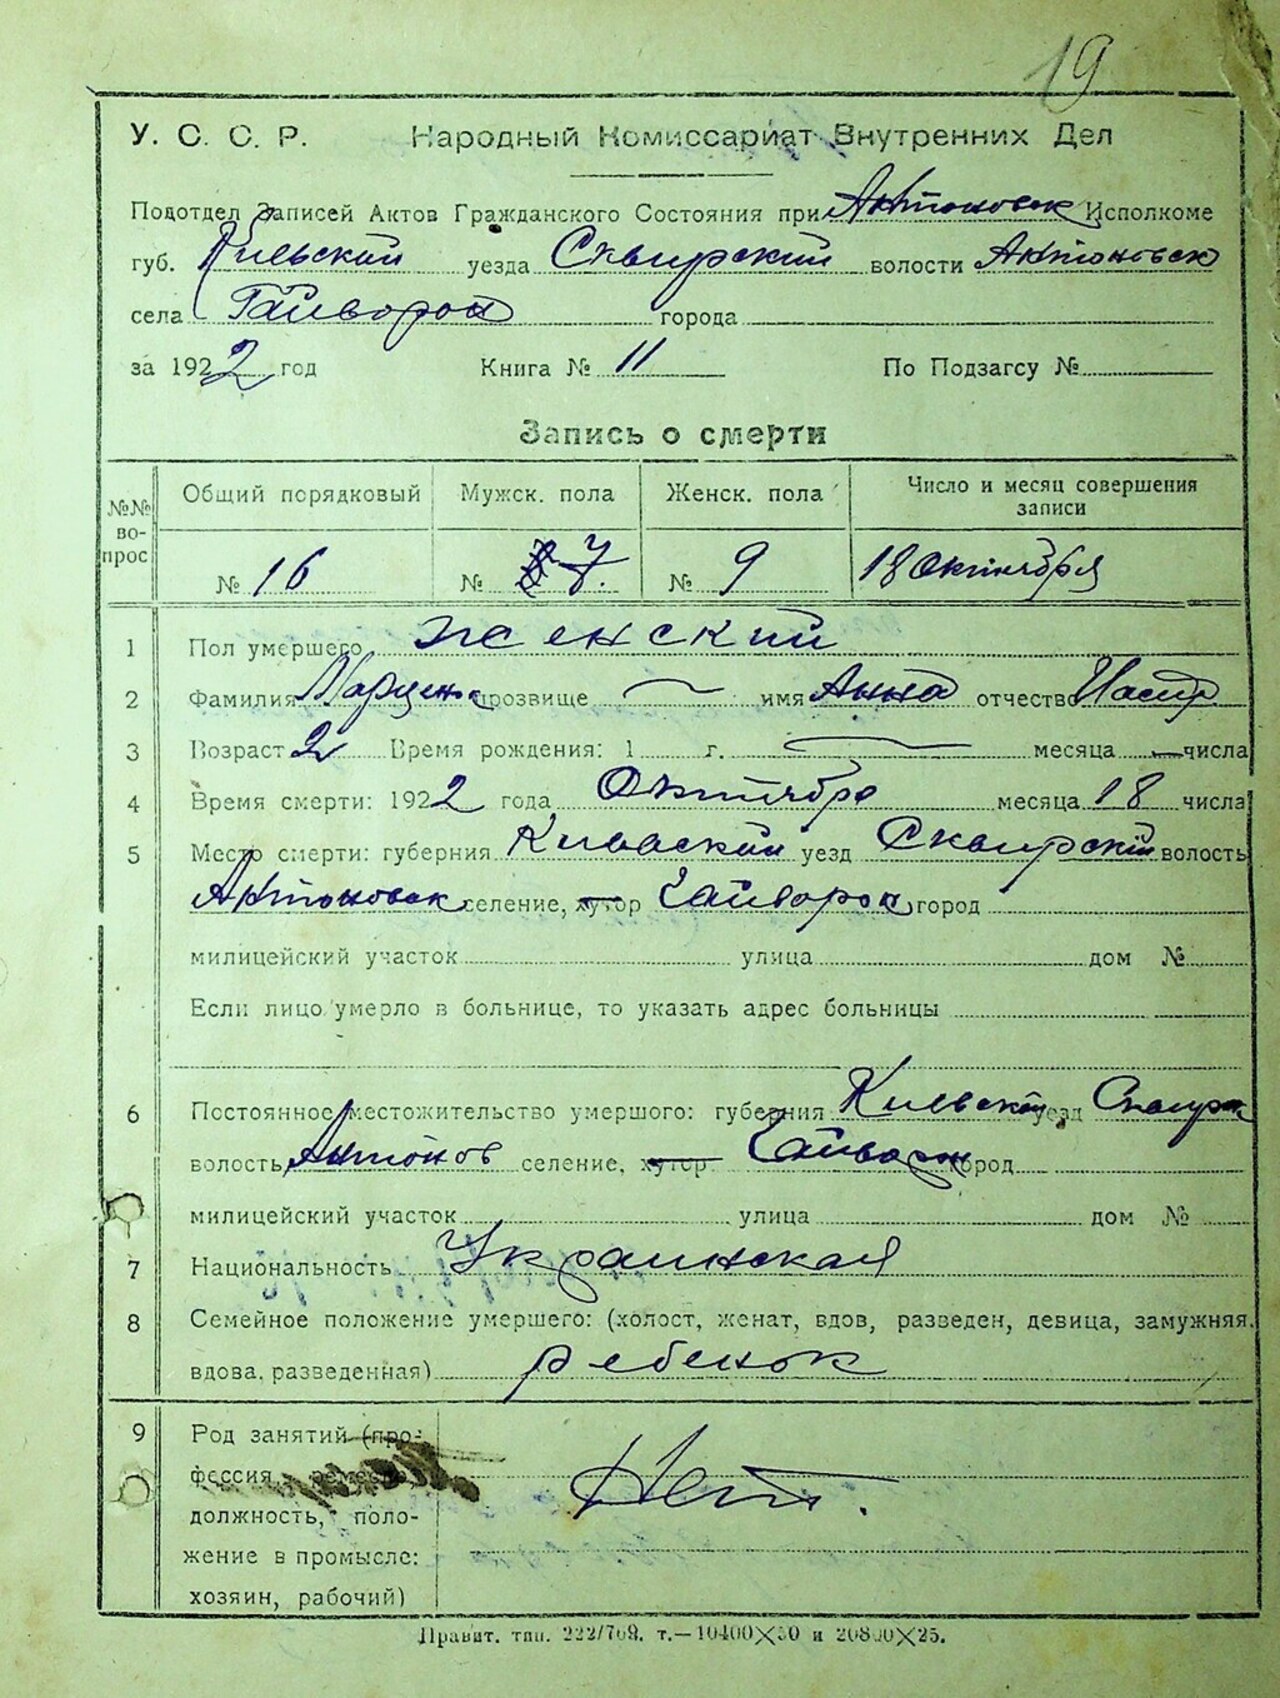 19
У. С. С. Р. Народный Комиссариат Внутренних Дел
Подотдел Записей Актов Гражданского Состояния при Антоновск Исполкоме
губ. Киевский уезда Сквирский волости Антоновск
села Гайворон города
за 1922 год Книга № 11 По Подзагсу №
Запись о смерти
№№ вопрос Общий порядковый Мужск. пола Женск. пола Число и месяц совершения записи
№ 16 № 7. № 9 18 Октября
1 Пол умершего женский
2 Фамилия Марценк прозвище имя Анна отчество
3 Возраст 2 Время рождения: 1 г. месяца числа
4 Время смерти: 1922 года Октября месяца 18 числа
5 Место смерти: губерния Киевский уезд Сквирский волость
Антоновск селение, хутор Гайворон город
милицейский участок улица дом №
Если лицо умерло в больнице, то указать адрес больницы
6 Постоянное местожительство умершого: губерния Киевский уезд Сквирск
волость Антонов селение, хутор Гайворон город
милицейский участок улица дом №
7 Национальность Украинская
8 Семейное положение умершего: (холост, женат, вдов, разведен, девица, замужняя,
вдова, разведенная) ребенок
9 Род занятий (про-
фессия, ремесло,
должность, поло- Нет.
жение в промысле:
хозяин, рабочий)
Правит. тип. 222/769. т.—10400×50 и 20800×25.